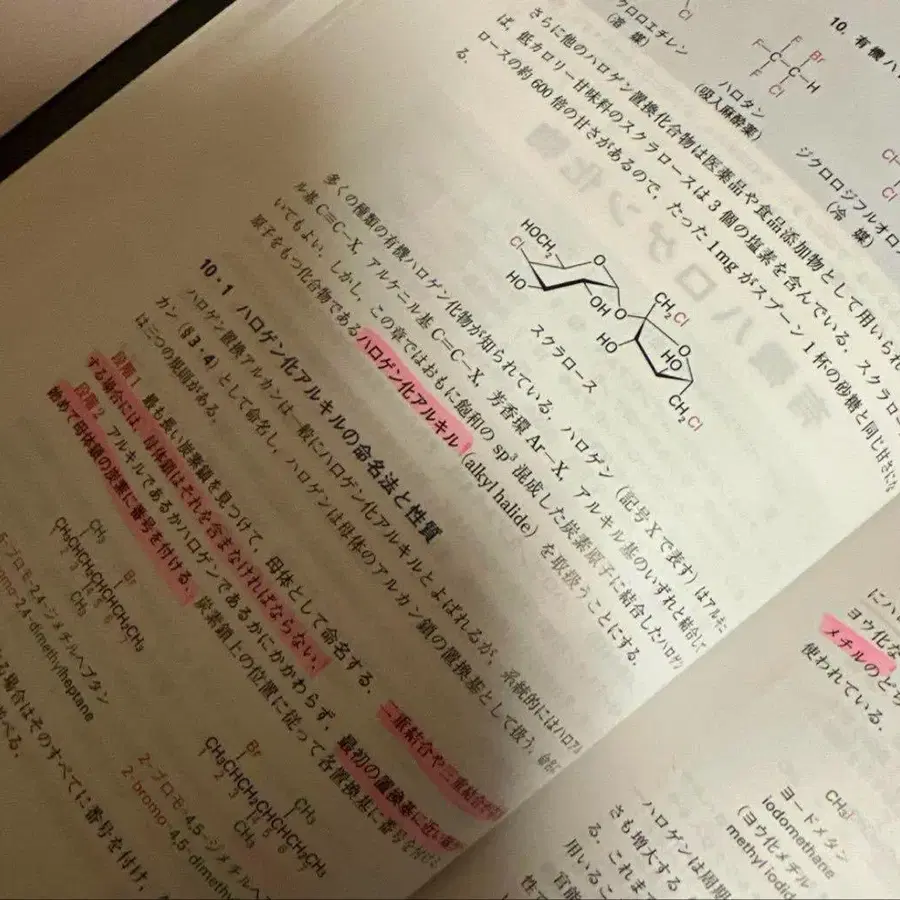 クロロエチレン
(溶 媒)
ハロタン
(吸入麻酔薬)
(冷 媒)
さらに他のハロゲン置換化合物は医薬品や食品添加物として用いられ
ば,低カロリー甘味料のスクラロースは3個の塩素を含んでいる.スクラロー
ロースの約600倍の甘さがあるので,たった1mgがスプーン1杯の砂糖と同じ甘さにな
る.
HOCH2
Cl
O
HO
OH
O
CH2Cl
HO
O
HO
CH2Cl
スクラロース
多くの種類の有機ハロゲン化物が知られている.ハロゲン(記号Xで表す)はアルキニ
ル基C≡C−X,アルケニル基C=C−X,芳香環Ar−X,アルキル基のいずれと結合して
いてもよい.しかし,この章ではおもに飽和のsp3混成した炭素原子に結合したハロゲン
原子をもつ化合物であるハロゲン化アルキル(alkyl halide)を取扱うことにする.
10・1 ハロゲン化アルキルの命名法と性質
ハロゲン置換アルカンは一般にハロゲン化アルキルとよばれるが,系統的にはハロアル
カン(§3・4)として命名し,ハロゲンは母体のアルカン鎖の置換基として扱う.命名に
は三つの規則がある.
段階1 最も長い炭素鎖を見つけて,母体として命名する.二重結合や三重結合が
する場合には,母体鎖はそれを含まなければならない.
段階2 アルキルであるかハロゲンであるかにかかわらず,最初の置換基に近い
始めて母体鎖の炭素に番号を付ける.炭素鎖上の位置に従って各置換基に番号を付け
CH3 Br
CH3CHCH2CHCHCH2CH3
CH3
5-ブロモ-2,4-ジメチルヘプタン
bromo-2,4-dimethylheptane
Br CH3
CH3CHCH2CHCHCH2CH3
CH3
2-ブロモ-4,5-ジメチルヘ
2-bromo-4,5-dimethy
る場合はそのすべてに番号を付け,
メチルのどち
使われている.
CH3I
ヨードメタン
iodomethane
(ヨウ化メチル
methyl iodid
ハロゲンは周期
さも増大する
る.これま
用いるこ
官能